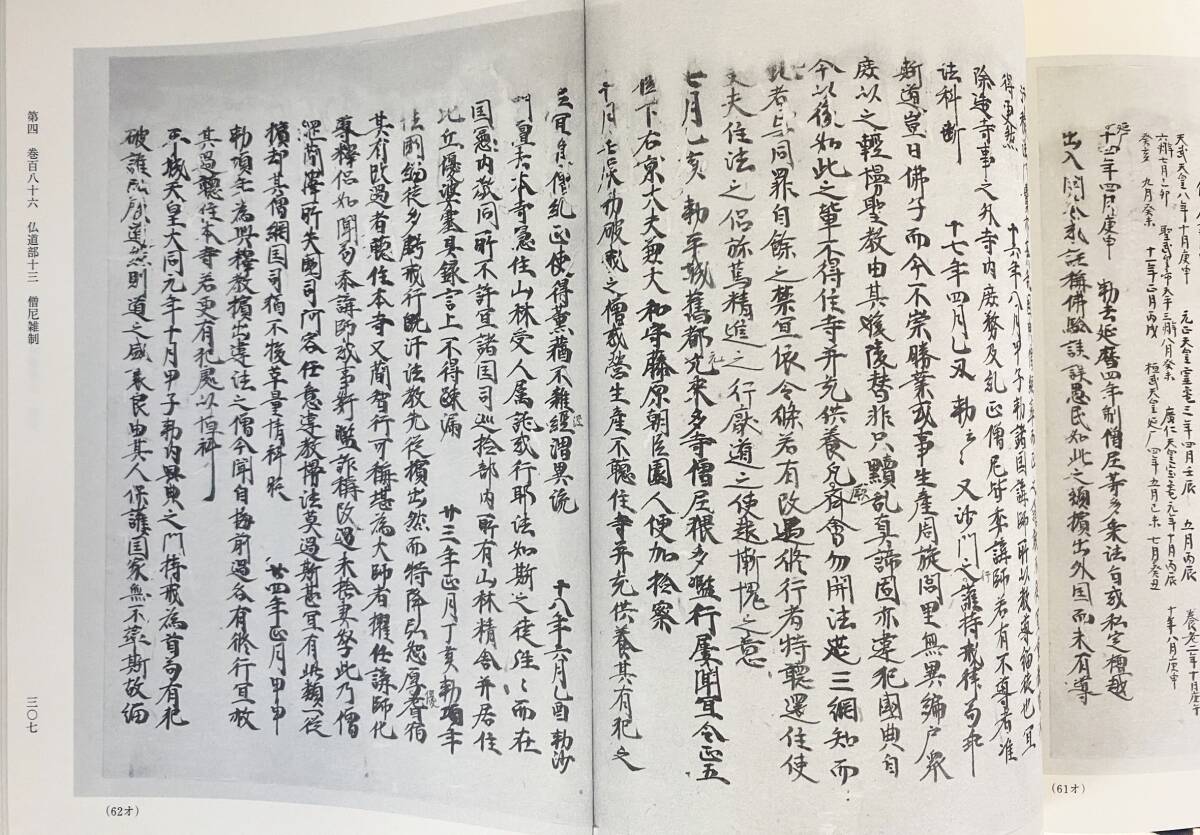 天武天皇八年十月庚申　元正天皇霊亀二年四月壬辰　五月丙辰　養老二年十月庚午
六年七月己卯　聖武天皇天平三年八月癸未　廣仁天皇宝亀元年十月丙辰　十年八月庚申
癸亥　九月癸未　十一年二月丙戌　桓武天皇延暦四年五月己未　七月癸丑
十四年四月庚申　勅去延暦四年制僧尼等多乖法旨或私定檀越
出入閭巷或誣稱佛驗詿誤愚民如此之類擯出外国而未有遵
(61オ)
得更然　十六年八月甲子勅諸国講師所以教導緇徒也宜
除造寺事之外寺内庶務及糺正僧尼皆委講師若有不遵者准
法科断　十七年四月乙丑　勅云々又沙門之行護持戒律苟乖
斯道豈曰佛子而今不崇勝業或事生産周旋閭里無異編戸衆
庶以之輕慢聖教由其陵替非只黷乱真諦固亦違犯國典自
今以後如此之輩不得住寺并充供養凡厥齊會勿開法莚三綱知而
者与同罪自餘之禁亘依令條若有改過修行者特聽還住使
夫住法之侶弥篤精進之行厭道之徒起慚愧之意
七月乙亥　勅平城舊都元来多寺僧尼猥多濫行屡聞宜令正五
位下右京大夫兼大和守藤原朝臣園人便加撿察
十月　勅破戒之僧或營生産不聽住寺并充供養其有犯之
三宜自僧糺正使得薫蕕不雜緇涅異流　十八年六月己酉勅沙
門擅去本寺急住山林受人属託或行邪法如斯之徒往々而在
国憲内教同所不許宜諸国司巡撿部内所有山林精舎并居住
比丘優婆塞具録言上不得疎漏　廿三年正月丁亥勅頃年
緇徒多虧戒行既汗法教先従擯出然而特降弘恕厚優耆宿
其有改過者聽住本寺又簡智行可稱堪為大師者擢任講師化
導釋侶如聞　講師或事　詐稱改過未捨妻孥此乃僧
綱簡擇所失国司阿容任意導教慢法莫過斯甚宜有此類一従
擯却其僧綱国司猶不悛革量情科貶　廿四年正月甲申
勅頃年為興釋教擯出違法之僧今聞自悔前過各有修行宜放
其過聽住本寺若更有犯處以恒科
平城天皇大同元年十月甲子勅内典之門持戒為首苟有犯
破誰成道然則道之盛衰良由其人保護国家無不率斯故緇
(62オ)
第四　巻百八十六　仏道部十三　僧尼雑制
三〇七